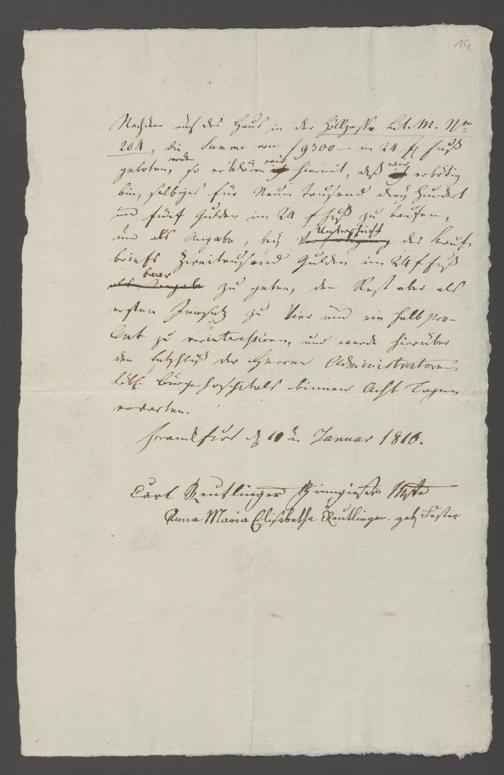 14
Nachdem auf das Haus in der Höllgasse Lit. M. Nro
204, die Summe von f 9300 — im 24 fl Fuß
geboten worden, so erklären wir hiermit, daß wir erbötig
bin, selbiges für Neun tausend drey Hundert
und fünf Gulden im 24 f Fuß zu kaufen,
und als Angabe, bey Unterschrift des Kauf-
briefs Zweitausend Gulden im 24 f Fuß
baar zu geben, den Rest aber als
ersten Insatz zu Vier und ein halb pro-
Cent zu verinteressiren, und werde hierüber
den Entschluß der Herren Administratoren
löbl. Bürgerhospitals binnen Acht Tagen
erwarten.
Frankfurt d 10 Januar 1816.
Carl Reutlinger
Anna Maria Elisabetha Reutlinger. geb.